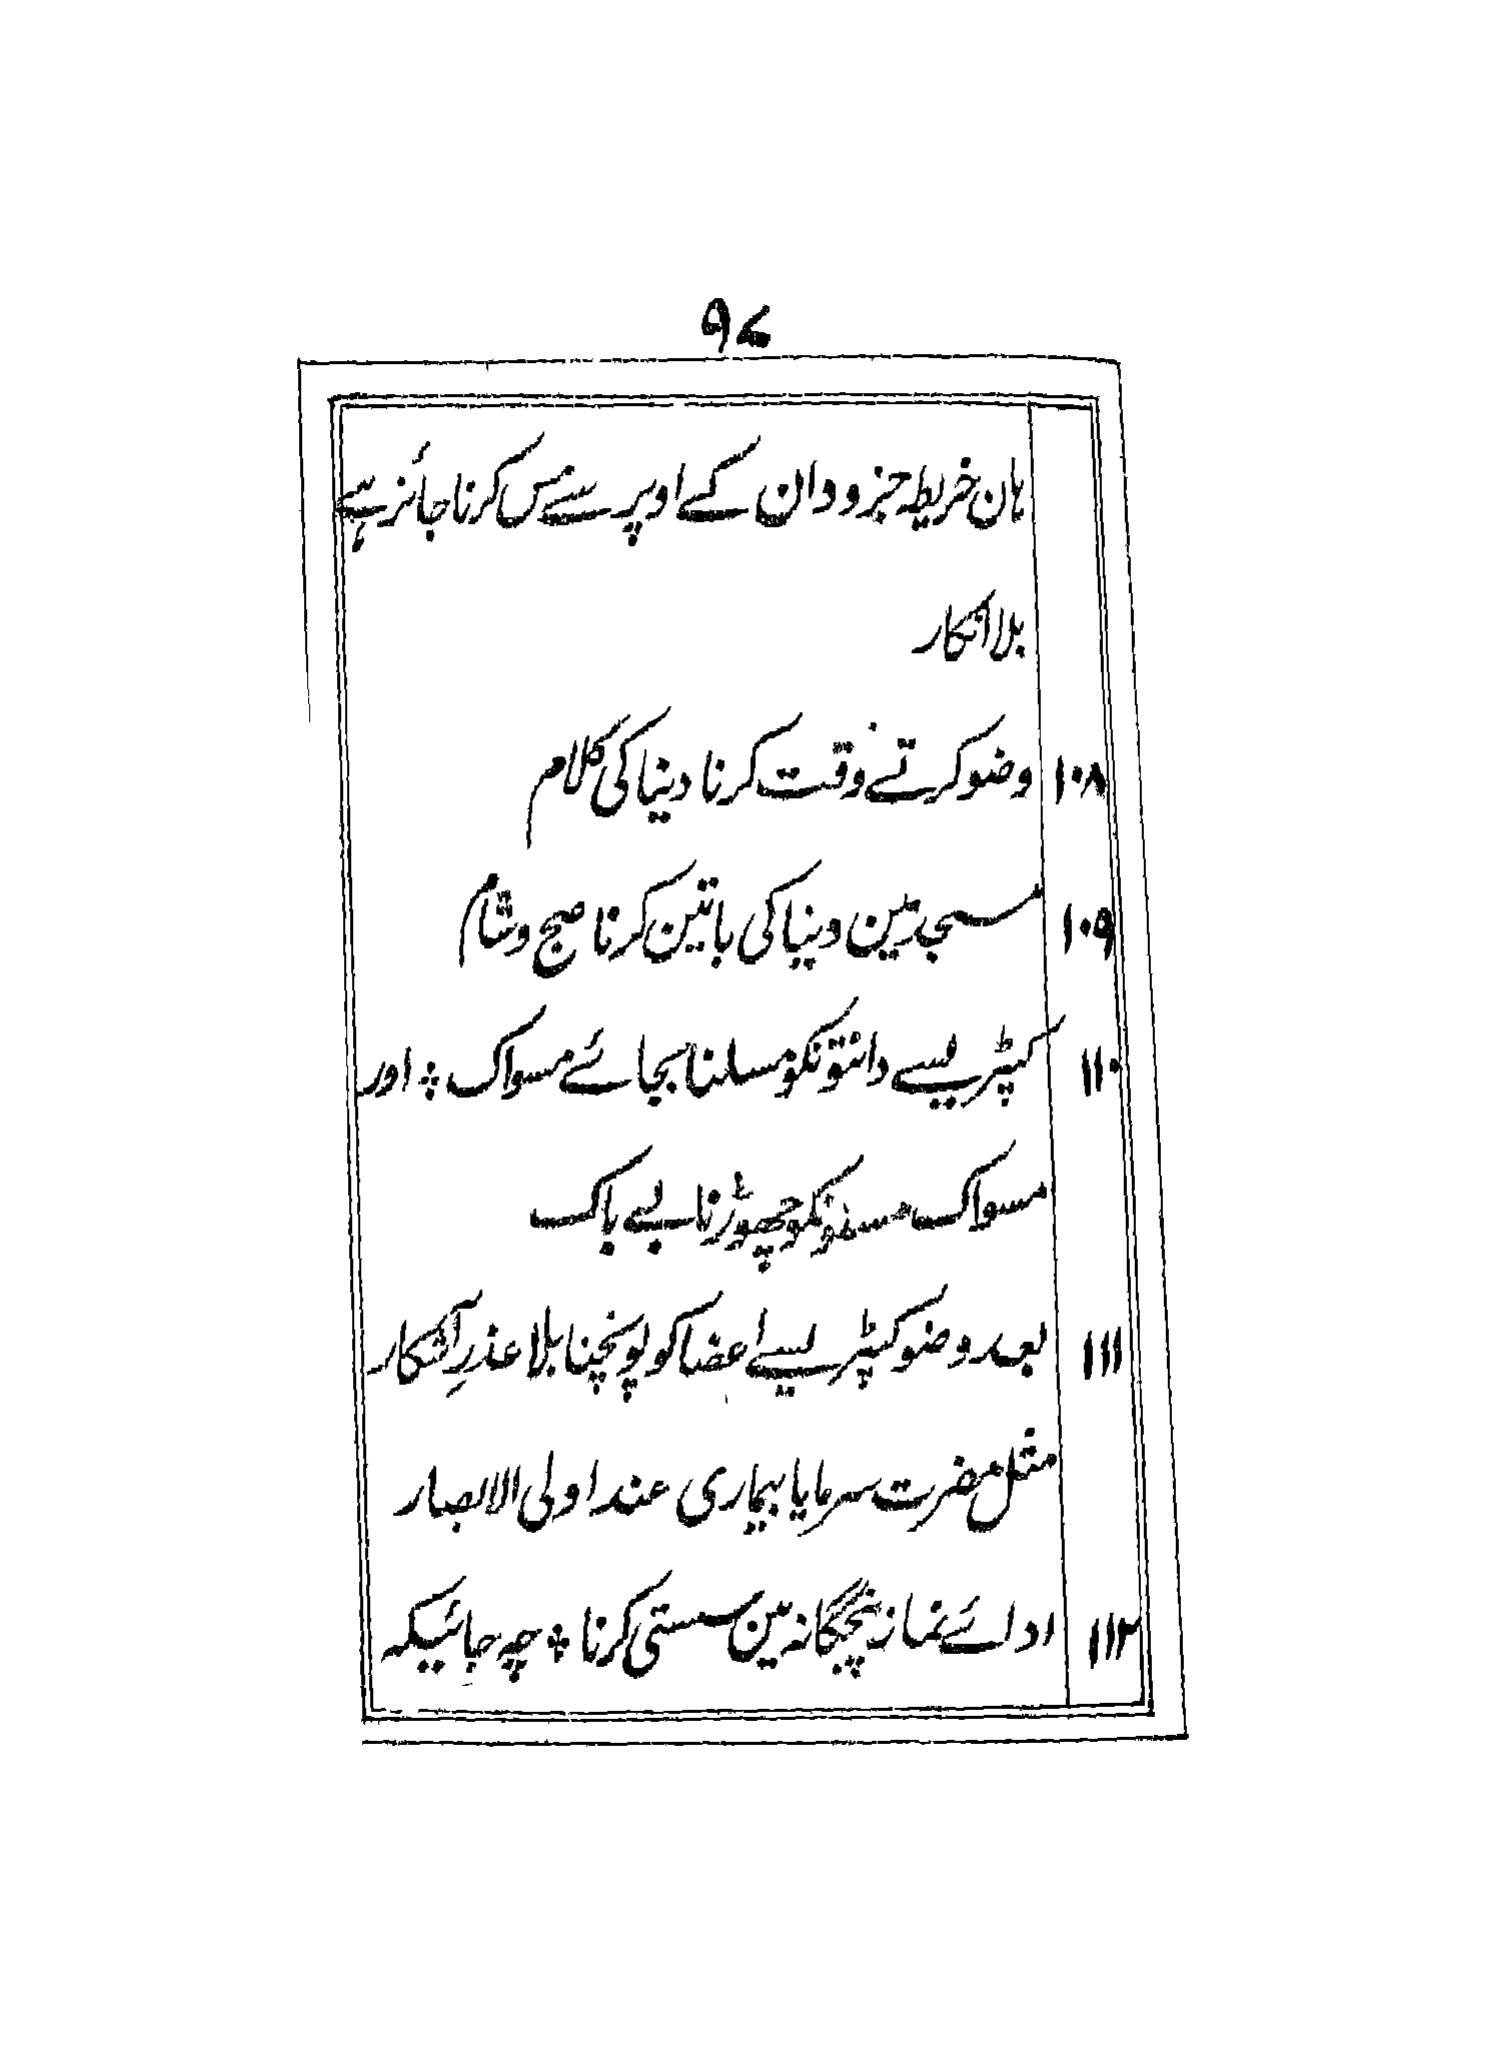 ۹۷
ہان خریطہ جزودان کے اوپر سے مس کرنا جائز ہے
بلا انکار
۱۰۸ وضو کرتے وقت کرنا دینا کی کلام
۱۰۹ مسجد مین دینا کی باتین کرنا صبح و شام
۱۱۰ کپڑیسے دانتونکو مسلنا بجائے مسواک ؞ اور
مسواک مسنونکو چھوڑنا بے باک
۱۱۱ بعد وضو کپڑیسے اعضا کو پونچنا بلا عذرِ آشکار
مثل مضرت سرما یا بیماری عند اولی الابصار
۱۱۲ ادائے نماز پنجگانہ مین سستی کرنا ؞ چہ جائیکہ